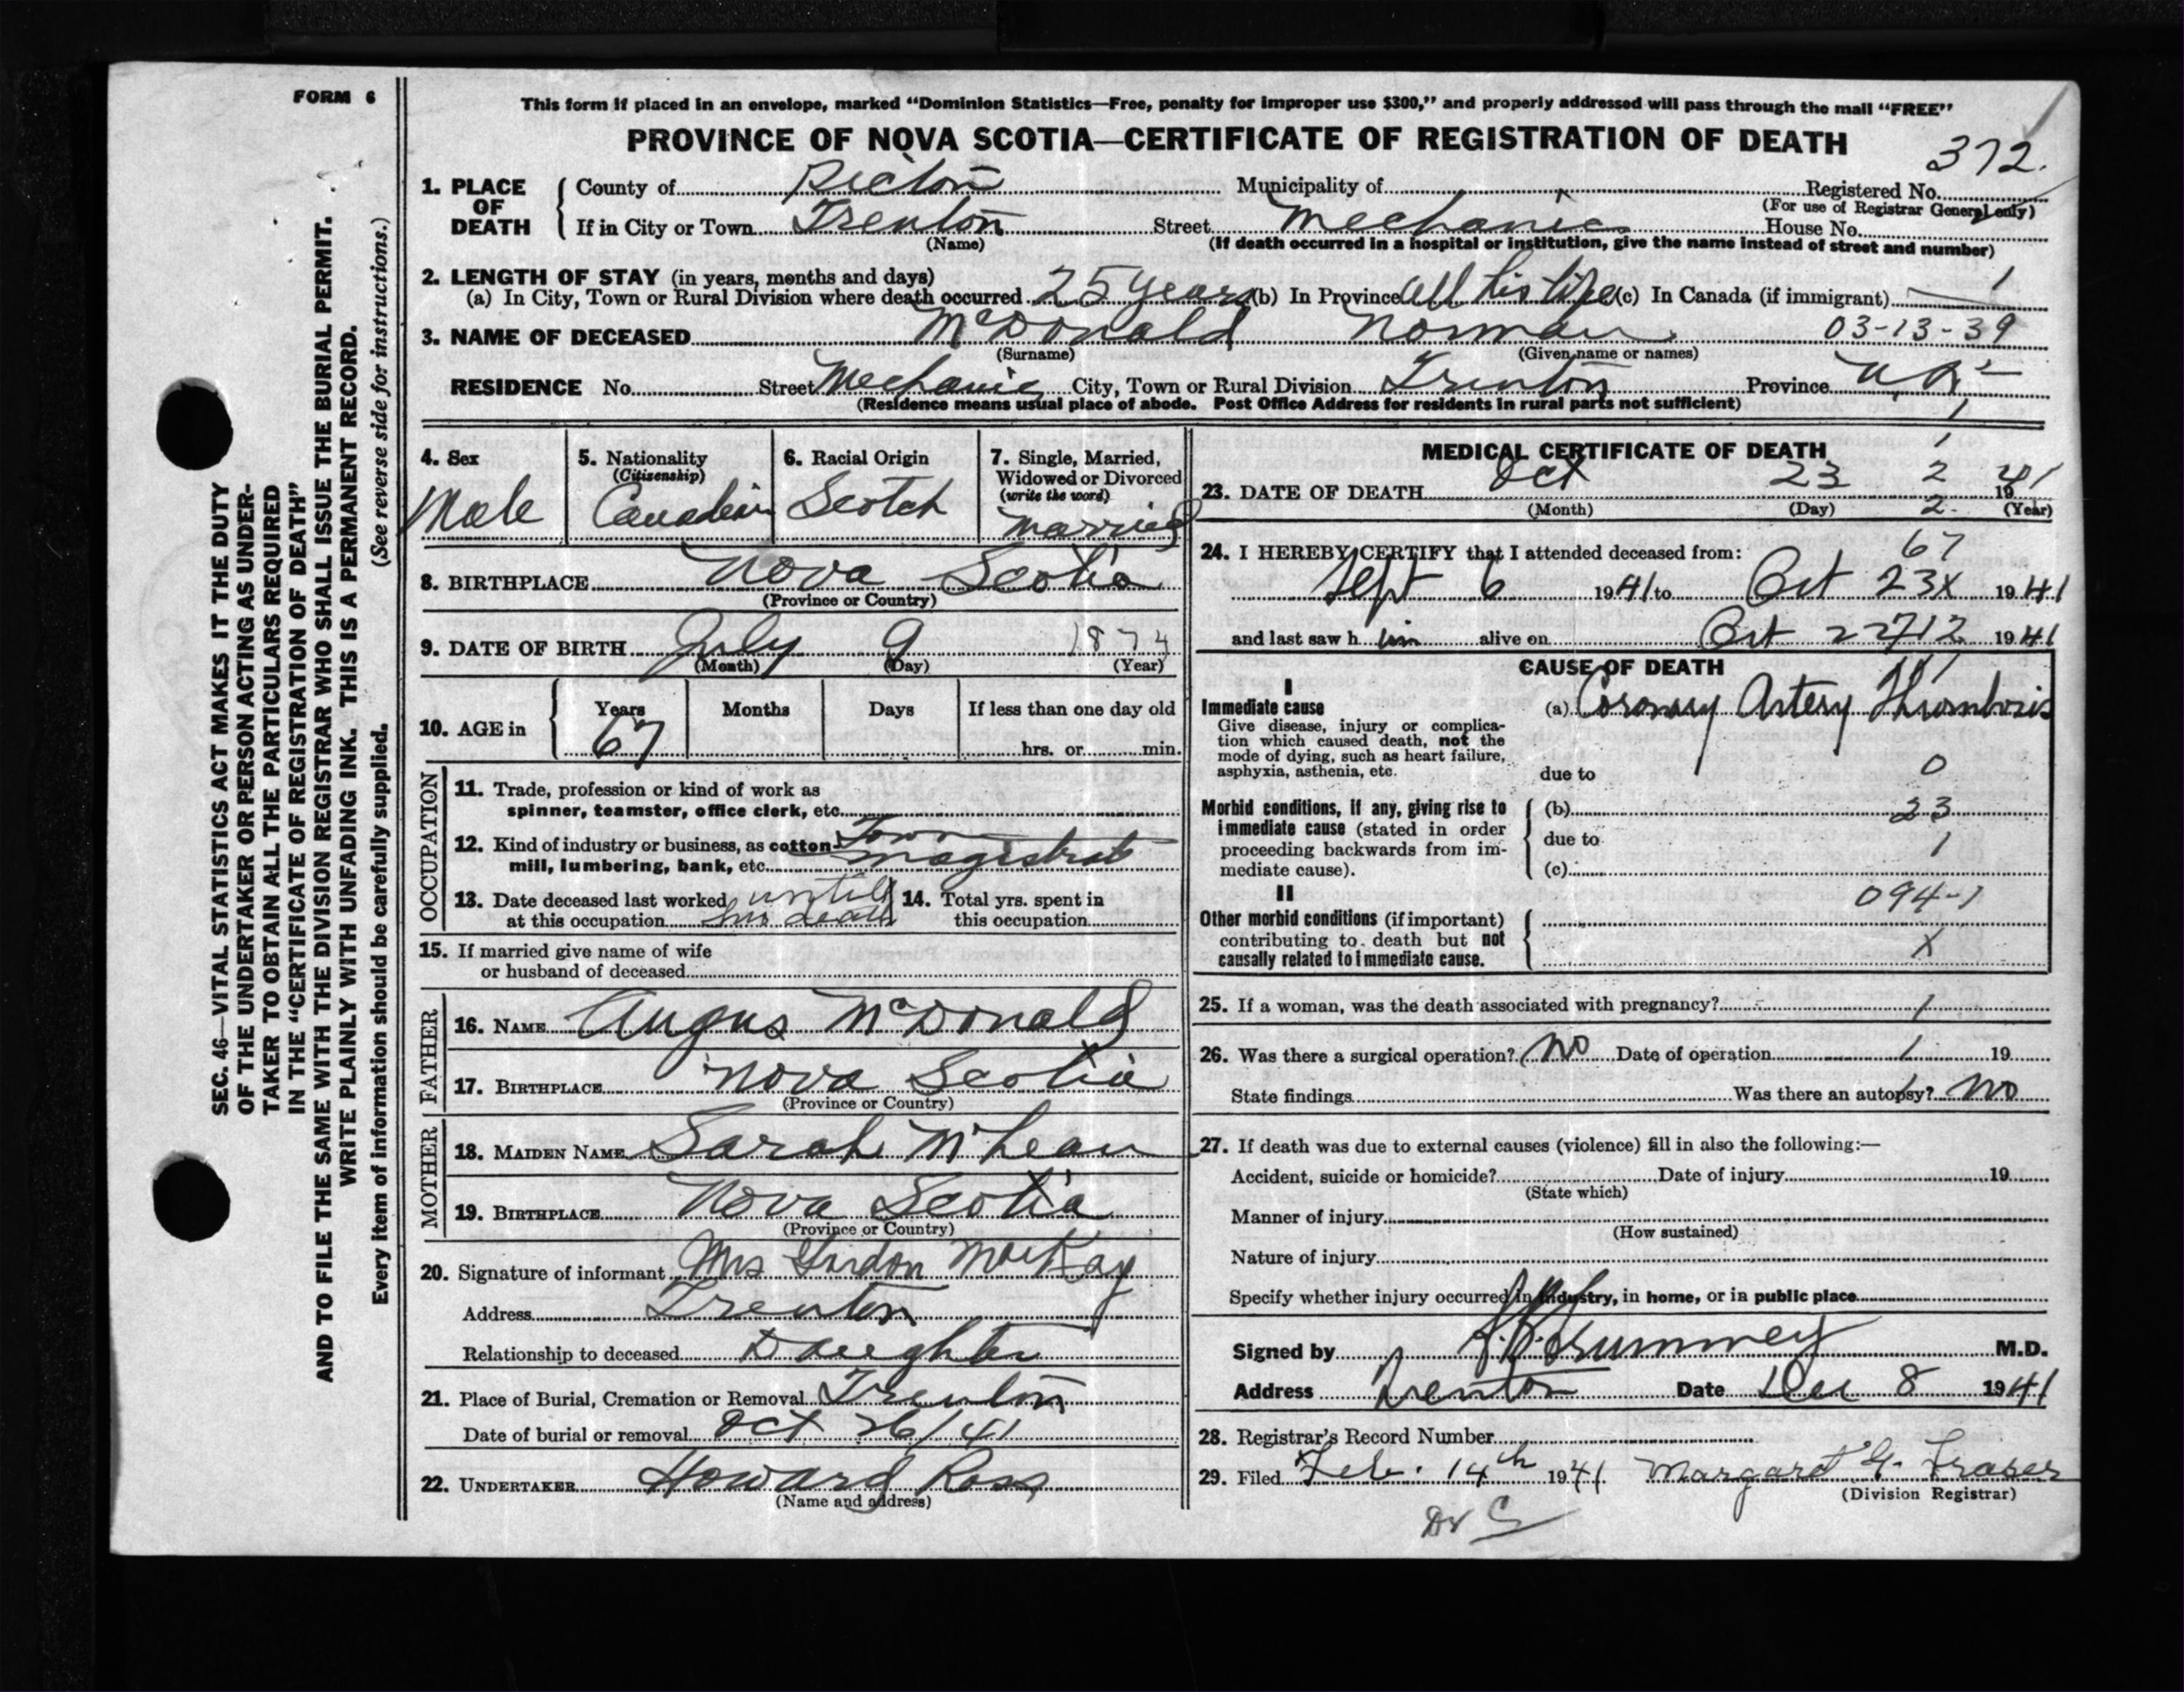 FORM 6
This form if placed in an envelope, marked “Dominion Statistics—Free, penalty for improper use $300,” and properly addressed will pass through the mail “FREE”
PROVINCE OF NOVA SCOTIA—CERTIFICATE OF REGISTRATION OF DEATH
372.
1. PLACE OF DEATH County of Pictou Municipality of Registered No.
(For use of Registrar General only)
If in City or Town Trenton Street Mechanic House No.
(Name) (If death occurred in a hospital or institution, give the name instead of street and number)
2. LENGTH OF STAY (in years, months and days) 1
(a) In City, Town or Rural Division where death occurred 25 years (b) In Province All his life (c) In Canada (if immigrant)
3. NAME OF DECEASED McDonald Norman 03-13-39
(Surname) (Given name or names)
RESIDENCE No. Street Mechanic City, Town or Rural Division Trenton Province N S
(Residence means usual place of abode. Post Office Address for residents in rural parts not sufficient) 1
4. Sex
Male
5. Nationality
(Citizenship)
Canadian
6. Racial Origin
Scotch
7. Single, Married,
Widowed or Divorced
(write the word)
Married
8. BIRTHPLACE Nova Scotia
(Province or Country)
9. DATE OF BIRTH July 9 1874
(Month) (Day) (Year)
10. AGE in Years Months Days If less than one day old
67 hrs. or min.
OCCUPATION
11. Trade, profession or kind of work as
spinner, teamster, office clerk, etc.
12. Kind of industry or business, as cotton Town
mill, lumbering, bank, etc. magistrate
13. Date deceased last worked until
at this occupation his death
14. Total yrs. spent in
this occupation
15. If married give name of wife
or husband of deceased
FATHER
16. NAME Angus McDonald
17. BIRTHPLACE Nova Scotia
(Province or Country)
MOTHER
18. MAIDEN NAME Sarah McLean
19. BIRTHPLACE Nova Scotia
(Province or Country)
20. Signature of informant Mrs Gordon MacKay
Address Trenton
Relationship to deceased Daughter
21. Place of Burial, Cremation or Removal Trenton
Date of burial or removal Oct 26/41
22. UNDERTAKER Howard Ross
(Name and address)
MEDICAL CERTIFICATE OF DEATH 1
23. DATE OF DEATH Oct 23 2 1941
(Month) (Day) 2. (Year)
24. I HEREBY CERTIFY that I attended deceased from: 67
Sept 6 1941 to Oct 23 X 1941
and last saw h im alive on Oct 22 712 1941
CAUSE OF DEATH
I
Immediate cause
Give disease, injury or complica-
tion which caused death, not the
mode of dying, such as heart failure,
asphyxia, asthenia, etc.
(a) Coronary Artery Thrombosis
due to 0
Morbid conditions, if any, giving rise to
immediate cause (stated in order
proceeding backwards from im-
mediate cause).
(b) 23
due to 1
(c)
II
Other morbid conditions (if important)
contributing to death but not
causally related to immediate cause.
094-1
X
25. If a woman, was the death associated with pregnancy? 1
26. Was there a surgical operation? No Date of operation 1 19
State findings Was there an autopsy? No
27. If death was due to external causes (violence) fill in also the following:—
Accident, suicide or homicide? Date of injury 19
(State which)
Manner of injury
(How sustained)
Nature of injury
Specify whether injury occurred in industry, in home, or in public place
Signed by M.D.
Address Trenton Date Dec 8 1941
28. Registrar's Record Number
29. Filed Feb. 14th 1941. Margaret G. Fraser
(Division Registrar)
SEC. 46—VITAL STATISTICS ACT MAKES IT THE DUTY
OF THE UNDERTAKER OR PERSON ACTING AS UNDER-
TAKER TO OBTAIN ALL THE PARTICULARS REQUIRED
IN THE “CERTIFICATE OF REGISTRATION OF DEATH”
AND TO FILE THE SAME WITH THE DIVISION REGISTRAR WHO SHALL ISSUE THE BURIAL PERMIT.
WRITE PLAINLY WITH UNFADING INK. THIS IS A PERMANENT RECORD.
Every item of information should be carefully supplied. (See reverse side for instructions.)